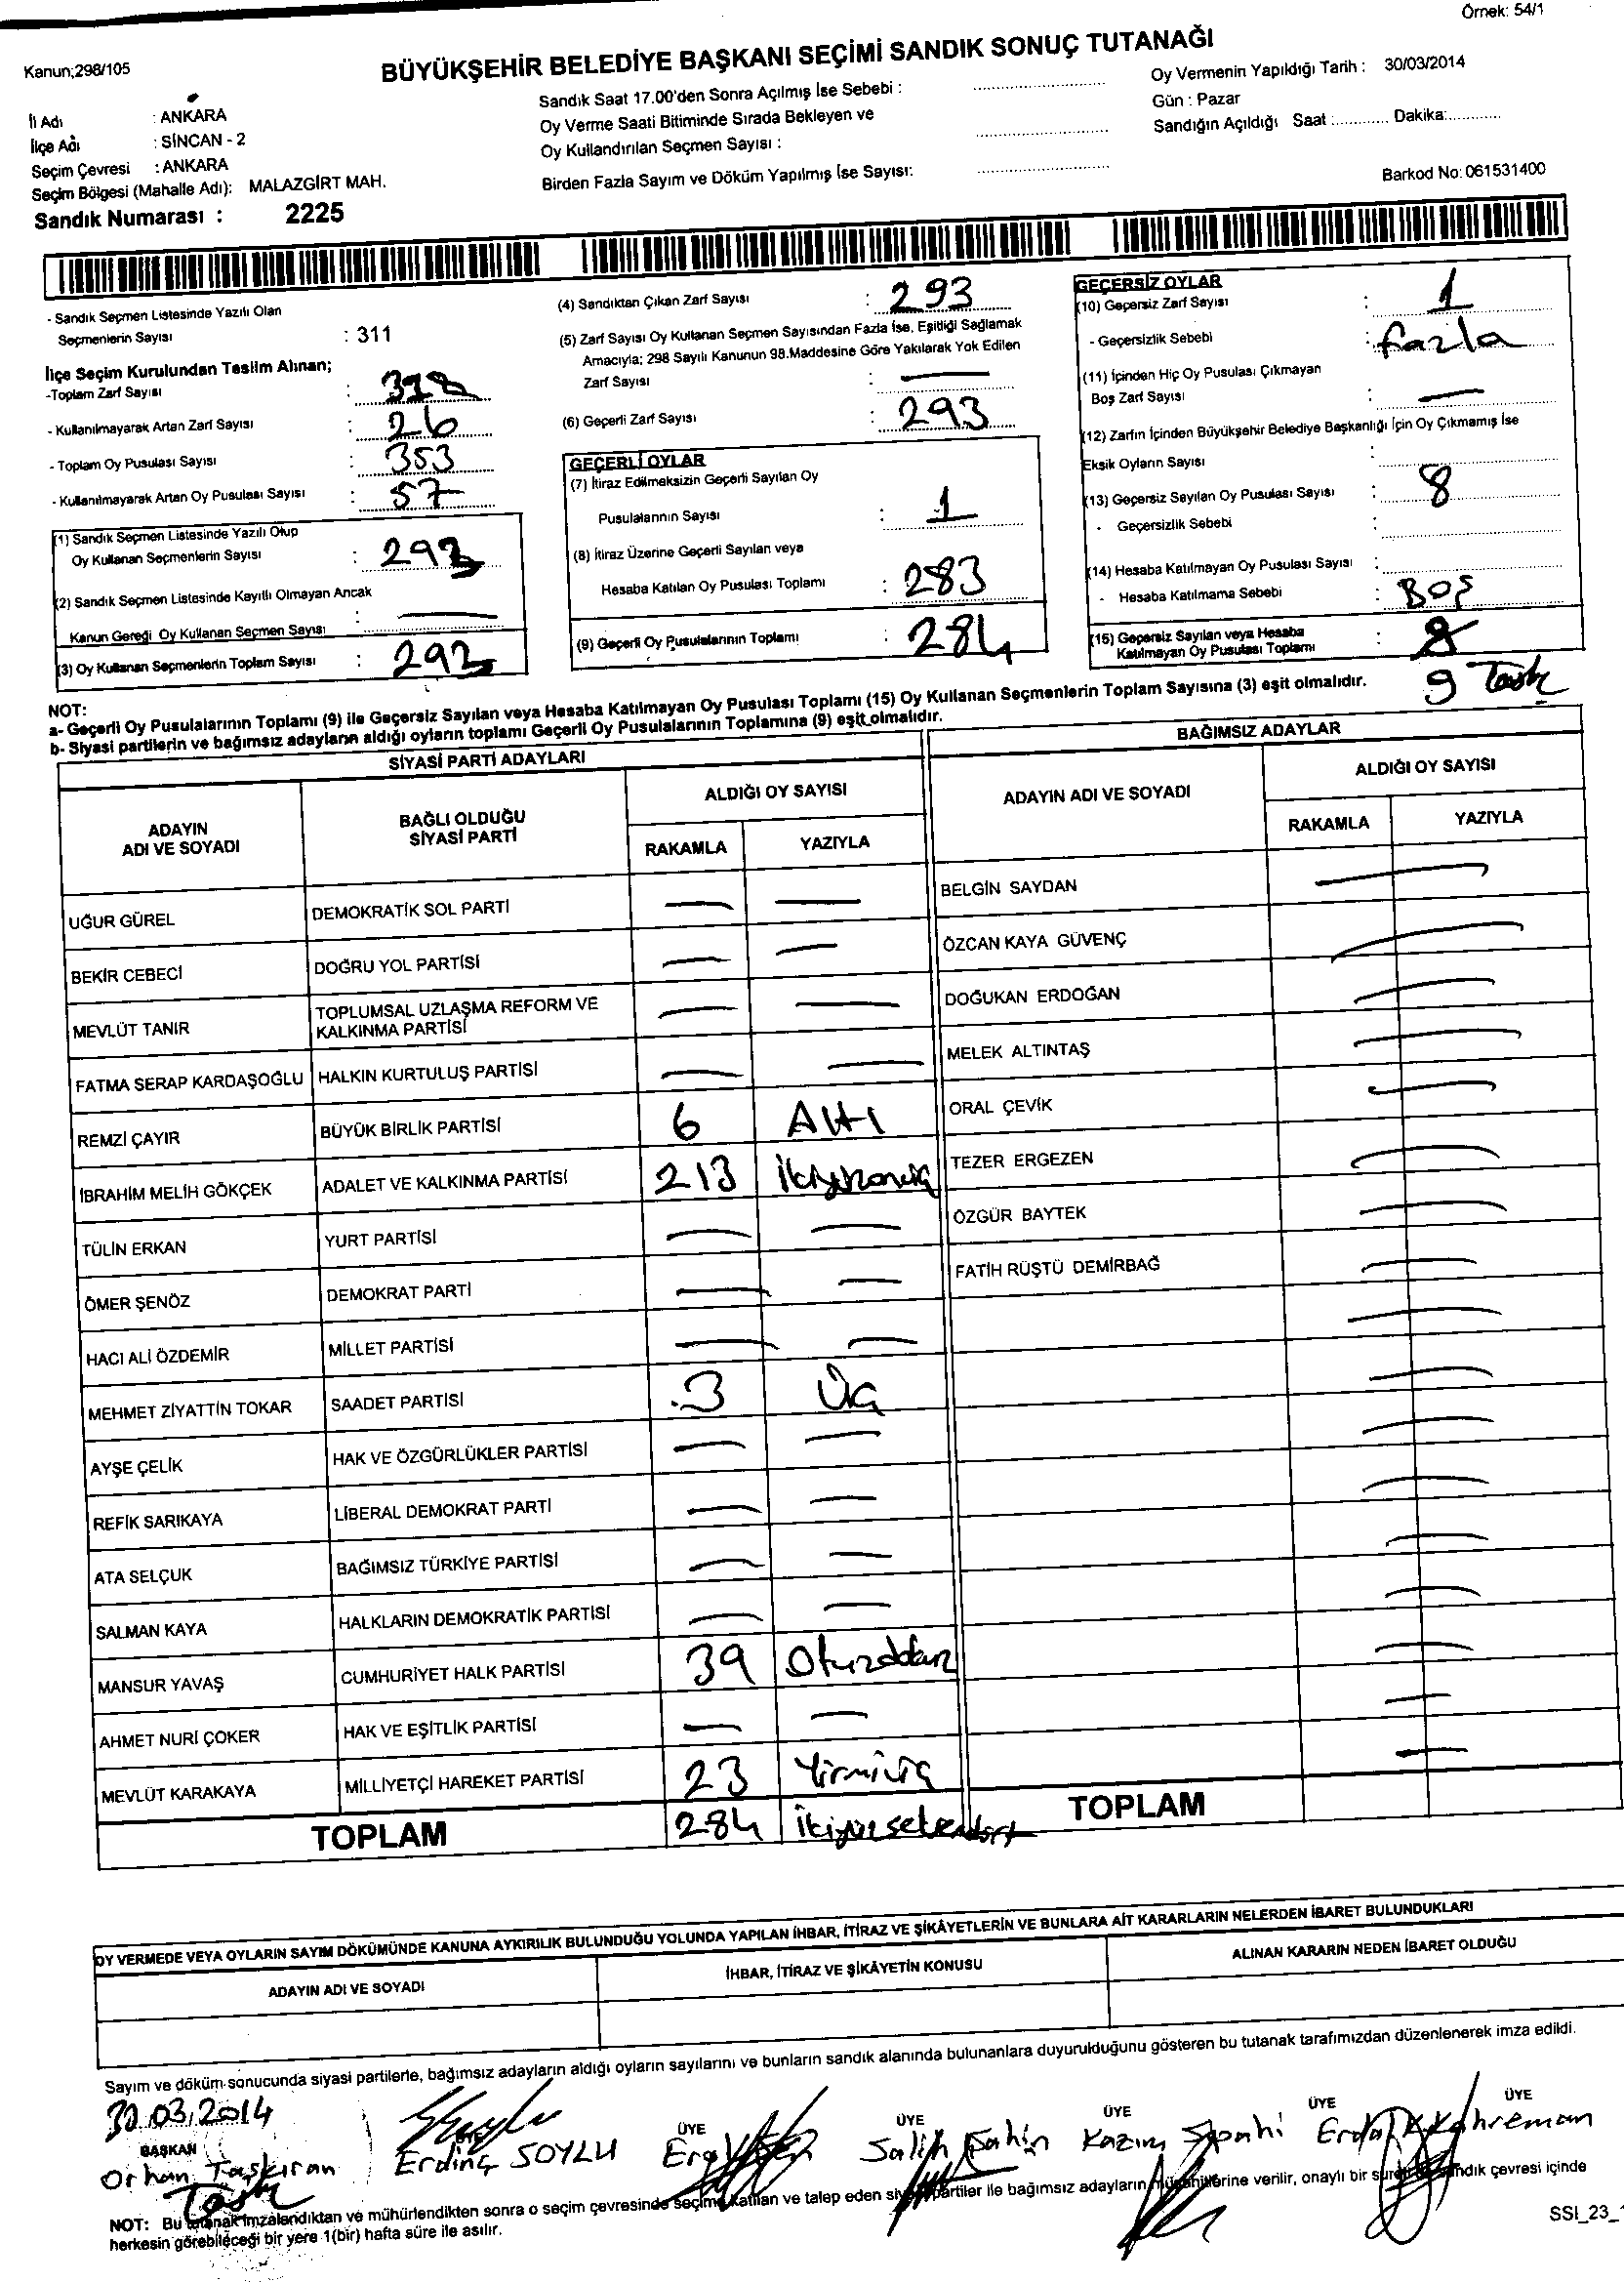 Örnek: 54/1
Kanun;298/105
BÜYÜKŞEHİR BELEDİYE BAŞKANI SEÇİMİ SANDIK SONUÇ TUTANAĞI
İl Adı : ANKARA
İlçe Adı : SİNCAN - 2
Seçim Çevresi : ANKARA
Seçim Bölgesi (Mahalle Adı): MALAZGİRT MAH.
Sandık Numarası : 2225
Sandık Saat 17.00'den Sonra Açılmış İse Sebebi :
Oy Verme Saati Bitiminde Sırada Bekleyen ve
Oy Kullandırılan Seçmen Sayısı :
Birden Fazla Sayım ve Döküm Yapılmış İse Sayısı:
Oy Vermenin Yapıldığı Tarih : 30/03/2014
Gün : Pazar
Sandığın Açıldığı Saat :............ Dakika:............
Barkod No: 061531400
- Sandık Seçmen Listesinde Yazılı Olan
Seçmenlerin Sayısı : 311
İlçe Seçim Kurulundan Teslim Alınan;
-Toplam Zarf Sayısı :
- Kullanılmayarak Artan Zarf Sayısı : 26
- Toplam Oy Pusulası Sayısı : 353
- Kullanılmayarak Artan Oy Pusulası Sayısı : 57
(1) Sandık Seçmen Listesinde Yazılı Olup
Oy Kullanan Seçmenlerin Sayısı : 293
(2) Sandık Seçmen Listesinde Kayıtlı Olmayan Ancak
Kanun Gereği Oy Kullanan Seçmen Sayısı : —
(3) Oy Kullanan Seçmenlerin Toplam Sayısı : 293
(4) Sandıktan Çıkan Zarf Sayısı : 293
(5) Zarf Sayısı Oy Kullanan Seçmen Sayısından Fazla İse, Eşitliği Sağlamak
Amacıyla; 298 Sayılı Kanunun 98.Maddesine Göre Yakılarak Yok Edilen
Zarf Sayısı : —
(6) Geçerli Zarf Sayısı : 293
GEÇERLİ OYLAR
(7) İtiraz Edilmeksizin Geçerli Sayılan Oy
Pusulalarının Sayısı : 1
(8) İtiraz Üzerine Geçerli Sayılan veya
Hesaba Katılan Oy Pusulası Toplamı : 283
(9) Geçerli Oy Pusulalarının Toplamı : 284
GEÇERSİZ OYLAR
(10) Geçersiz Zarf Sayısı : 1
- Geçersizlik Sebebi : fazla
(11) İçinden Hiç Oy Pusulası Çıkmayan
Boş Zarf Sayısı : —
(12) Zarfın İçinden Büyükşehir Belediye Başkanlığı İçin Oy Çıkmamış İse
Eksik Oyların Sayısı :
(13) Geçersiz Sayılan Oy Pusulası Sayısı : 8
- Geçersizlik Sebebi :
(14) Hesaba Katılmayan Oy Pusulası Sayısı :
- Hesaba Katılmama Sebebi : Boş
(15) Geçersiz Sayılan veya Hesaba
Katılmayan Oy Pusulası Toplamı : 8
9
NOT:
a- Geçerli Oy Pusulalarının Toplamı (9) ile Geçersiz Sayılan veya Hesaba Katılmayan Oy Pusulası Toplamı (15) Oy Kullanan Seçmenlerin Toplam Sayısına (3) eşit olmalıdır.
b- Siyasi partilerin ve bağımsız adayların aldığı oyların toplamı Geçerli Oy Pusulalarının Toplamına (9) eşit olmalıdır.
SİYASİ PARTİ ADAYLARI
ADAYIN ADI VE SOYADI BAĞLI OLDUĞU SİYASİ PARTİ ALDIĞI OY SAYISI
RAKAMLA YAZIYLA
UĞUR GÜREL DEMOKRATİK SOL PARTİ — —
BEKİR CEBECİ DOĞRU YOL PARTİSİ — —
MEVLÜT TANIR TOPLUMSAL UZLAŞMA REFORM VE KALKINMA PARTİSİ — —
FATMA SERAP KARDAŞOĞLU HALKIN KURTULUŞ PARTİSİ — —
REMZİ ÇAYIR BÜYÜK BİRLİK PARTİSİ 6 Altı
İBRAHİM MELİH GÖKÇEK ADALET VE KALKINMA PARTİSİ 213 İkiyüzonüç
TÜLİN ERKAN YURT PARTİSİ — —
ÖMER ŞENÖZ DEMOKRAT PARTİ — —
HACI ALİ ÖZDEMİR MİLLET PARTİSİ — —
MEHMET ZİYATTİN TOKAR SAADET PARTİSİ 3 Üç
AYŞE ÇELİK HAK VE ÖZGÜRLÜKLER PARTİSİ — —
REFİK SARIKAYA LİBERAL DEMOKRAT PARTİ — —
ATA SELÇUK BAĞIMSIZ TÜRKİYE PARTİSİ — —
SALMAN KAYA HALKLARIN DEMOKRATİK PARTİSİ — —
MANSUR YAVAŞ CUMHURİYET HALK PARTİSİ 39 Otuzdokuz
AHMET NURİ ÇOKER HAK VE EŞİTLİK PARTİSİ — —
MEVLÜT KARAKAYA MİLLİYETÇİ HAREKET PARTİSİ 23 Yirmiüç
TOPLAM 284 İkiyüzseksendört
BAĞIMSIZ ADAYLAR
ADAYIN ADI VE SOYADI ALDIĞI OY SAYISI
RAKAMLA YAZIYLA
BELGİN SAYDAN —
ÖZCAN KAYA GÜVENÇ —
DOĞUKAN ERDOĞAN —
MELEK ALTINTAŞ —
ORAL ÇEVİK —
TEZER ERGEZEN —
ÖZGÜR BAYTEK —
FATİH RÜŞTÜ DEMİRBAĞ —
TOPLAM
OY VERMEDE VEYA OYLARIN SAYIM DÖKÜMÜNDE KANUNA AYKIRILIK BULUNDUĞU YOLUNDA YAPILAN İHBAR, İTİRAZ VE ŞİKÂYETLERİN VE BUNLARA AİT KARARLARIN NELERDEN İBARET BULUNDUKLARI
ADAYIN ADI VE SOYADI İHBAR, İTİRAZ VE ŞİKÂYETİN KONUSU ALINAN KARARIN NEDEN İBARET OLDUĞU
Sayım ve döküm sonucunda siyasi partilerle, bağımsız adayların aldığı oyların sayılarını ve bunların sandık alanında bulunanlara duyurulduğunu gösteren bu tutanak tarafımızdan düzenlenerek imza edildi.
30.03.2014
BAŞKAN ÜYE ÜYE ÜYE ÜYE
Orhan Taşkıran Erdinç SOYLU Salih Şahin Kazım Sipahi Erdal Kahreman
NOT: Bu tutanak imzalandıktan ve mühürlendikten sonra o seçim çevresinde seçime katılan ve talep eden siyasi partiler ile bağımsız adayların müşahitlerine verilir, onaylı bir sureti de sandık çevresi içinde
herkesin görebileceği bir yere 1(bir) hafta süre ile asılır.
SSI_23_